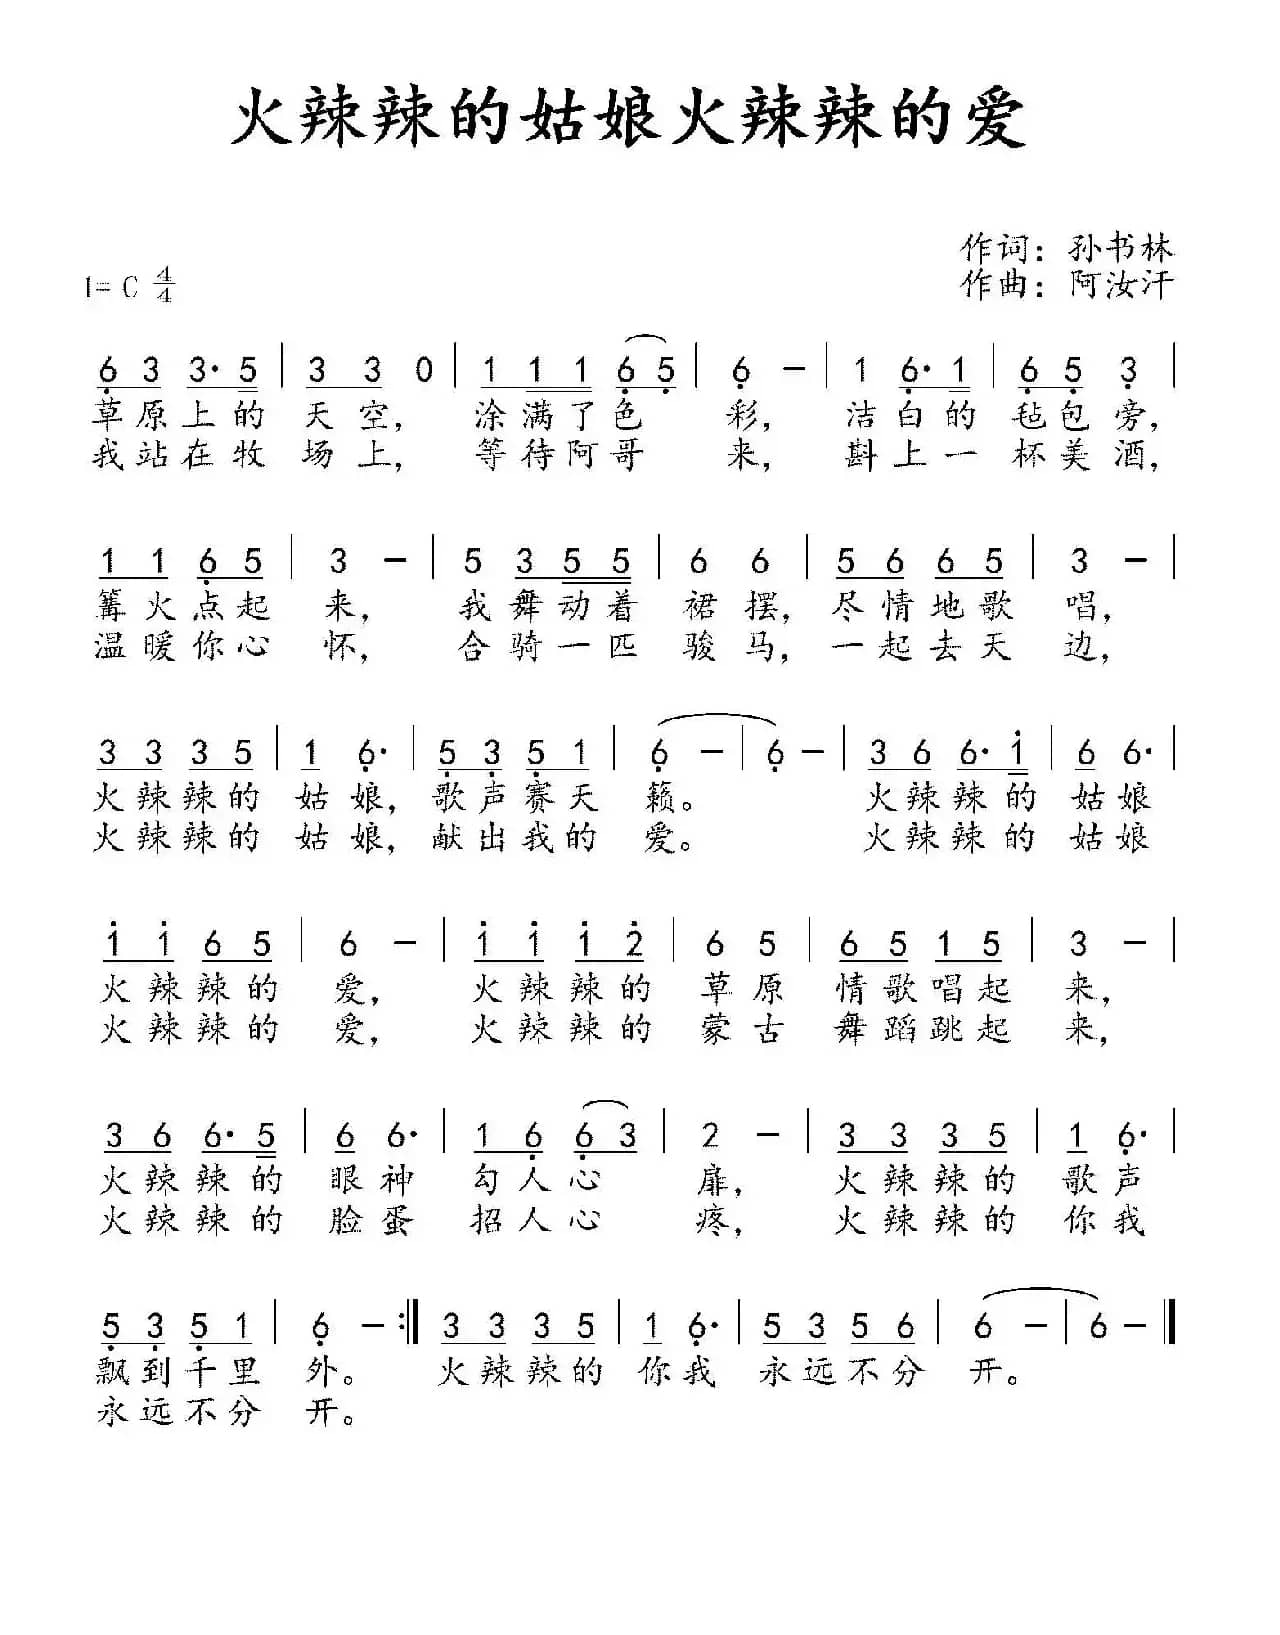 火辣辣的姑娘火辣辣的爱
作词：孙书林
1= C 4/4
作曲：阿汝汗
6 3 3· 5 | 3 3 0 | 1 1 1 6 5 | 6 － | 1 6· 1 | 6 5 3 |
草原上的 天空， 涂满了色 彩， 洁白的 毡包旁，
我站在牧 场上， 等待阿哥 来， 斟上一 杯美酒，
1 1 6 5 | 3 － | 5 3 5 5 | 6 6 | 5 6 6 5 | 3 － |
篝火点起 来， 我舞动着 裙摆， 尽情地歌 唱，
温暖你心 怀， 合骑一匹 骏马， 一起去天 边，
3 3 3 5 | 1 6· | 5 3 5 1 | 6 － | 6 － | 3 6 6· 1 | 6 6· |
火辣辣的 姑娘， 歌声赛天 籁。 火辣辣的 姑娘
火辣辣的 姑娘， 献出我的 爱。 火辣辣的 姑娘
1 1 6 5 | 6 － | 1 1 1 2 | 6 5 | 6 5 1 5 | 3 － |
火辣辣的 爱， 火辣辣的 草原 情歌唱起 来，
火辣辣的 爱， 火辣辣的 蒙古 舞蹈跳起 来，
3 6 6· 5 | 6 6· | 1 6 6 3 | 2 － | 3 3 3 5 | 1 6· |
火辣辣的 眼神 勾人心 扉， 火辣辣的 歌声
火辣辣的 脸蛋 招人心 疼， 火辣辣的 你我
5 3 5 1 | 6 － :| 3 3 3 5 | 1 6· | 5 3 5 6 | 6 － | 6 － ‖
飘到千里 外。 火辣辣的 你我 永远不分 开。
永远不分 开。